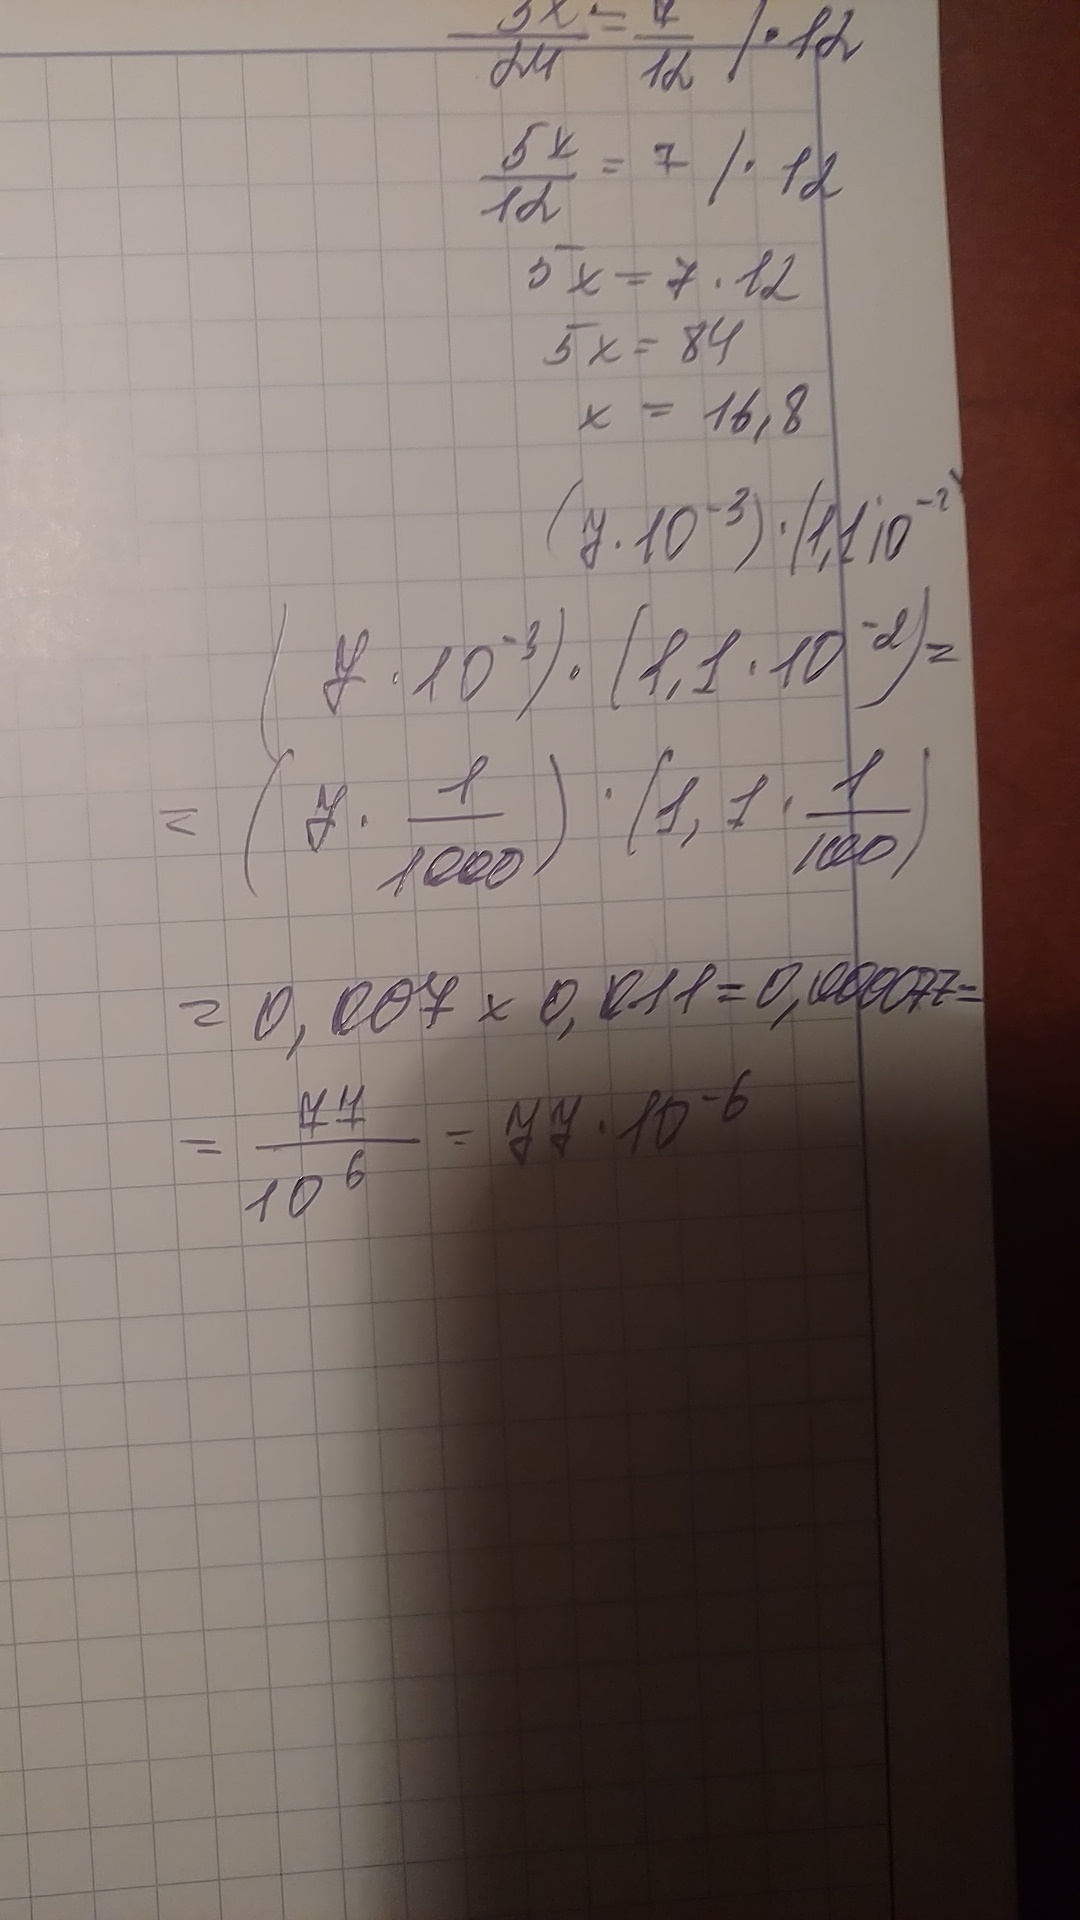 5x/24 = 7/12 /·12
5x/12 = 7 /·12
5x = 7·12
5x = 84
x = 16,8
(7·10⁻³)·(1,1·10⁻²)
(7·10⁻³)·(1,1·10⁻²)=
= (7·1/1000)·(1,1·1/100)
= 0,007 x 0,011 = 0,000077 =
= 77/10⁶ = 77·10⁻⁶